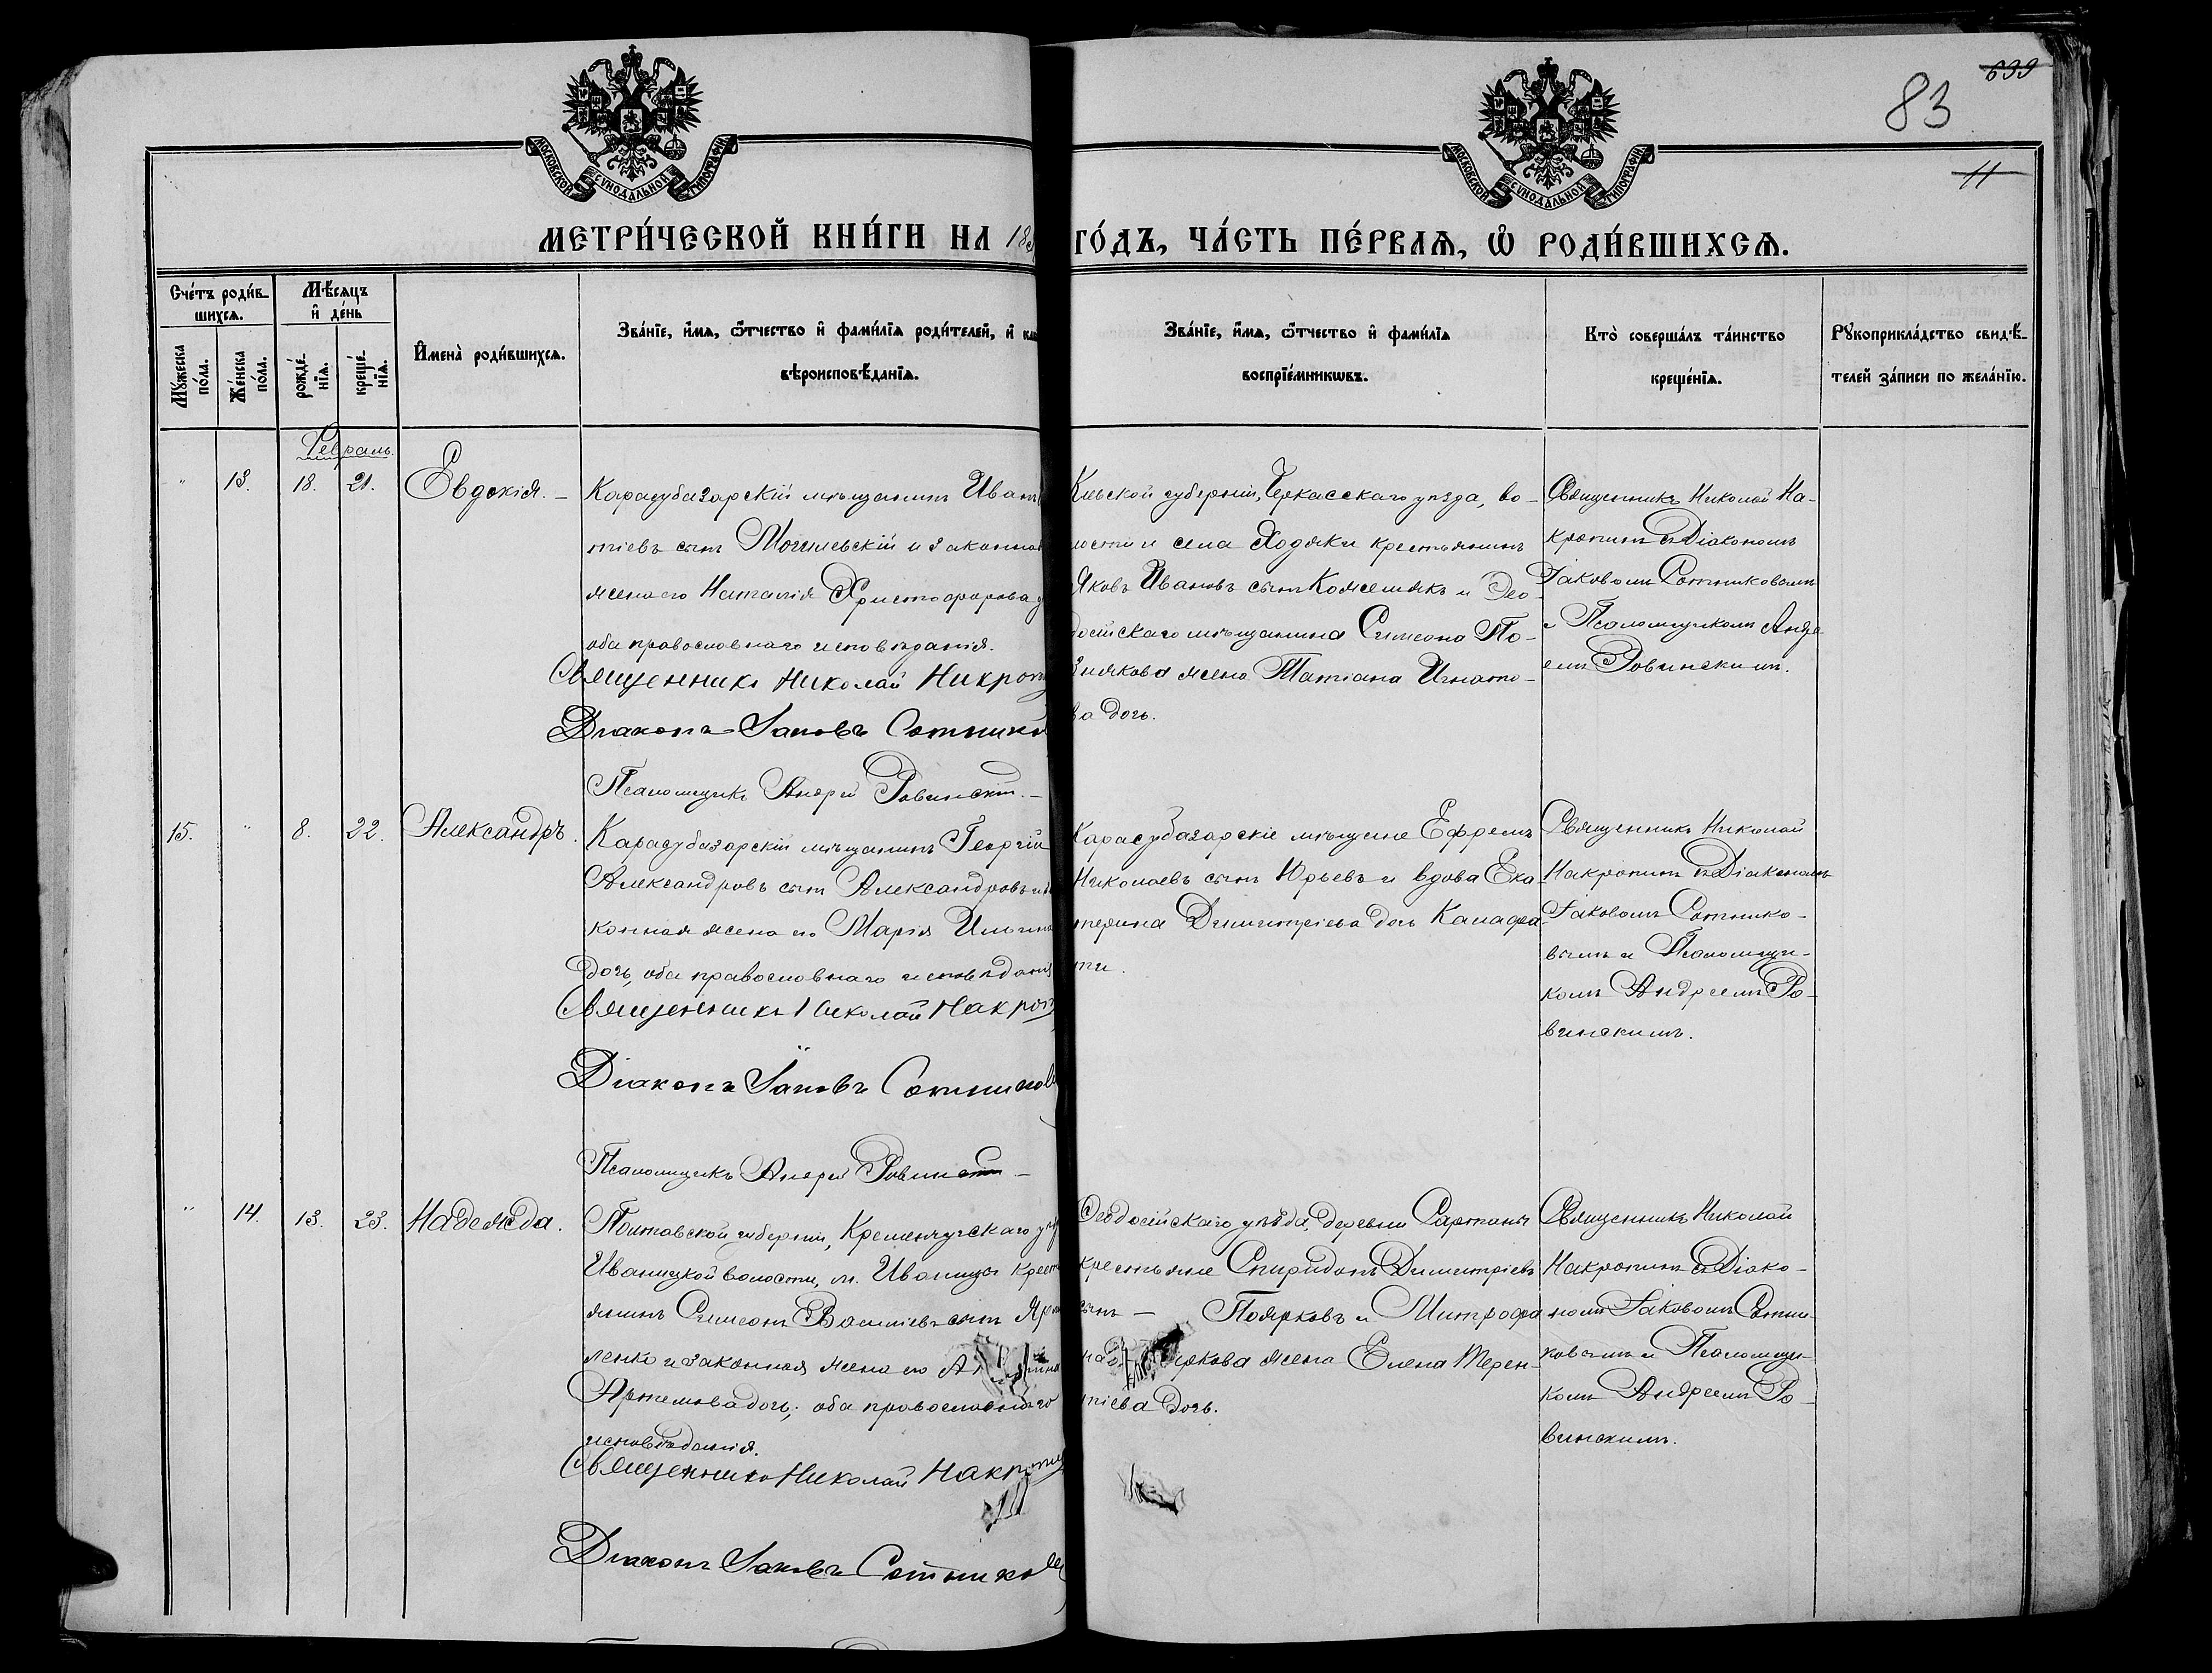 83
699
11
МОСКОВСКОЙ СѴНОДАЛЬНОЙ ТИПОГРАФІИ
МОСКОВСКОЙ СѴНОДАЛЬНОЙ ТИПОГРАФІИ
МЕТРИ́ЧЕСКОЙ КНИ́ГИ НА 18
ГО́ДЪ, ЧА́СТЬ ПЕ́РВАѦ, Ѡ҆ РОДИ́ВШИХСѦ.
Сче́тъ роди́в-
шихсѧ.
Мѣ́сѧцъ
и҆ де́нь
Мꙋ́жеска по́ла.
Же́нска по́ла.
рожде́-
нїѧ.
креще́-
нїѧ.
И҆мена̀ роди́вшихсѧ.
Зва́нїе, и҆́мѧ, ѻ҆́тчество и҆ фамі́лїѧ роди́телей, и҆
вѣроисповѣ́данїѧ.
Зва́нїе, и҆́мѧ, ѻ҆́тчество и҆ фами́лїѧ
воспрїе́мникѡвъ.
Кто̀ соверша́лъ та́инство
креще́нїѧ.
Рꙋкоприкла́дство свидѣ́-
телей за́писи по жела́нїю.
Февраль.
" 13. 18. 21. Евдокія. –
Карасубазарскій мѣщанинъ Иванъ
тіевъ сынъ Могилевскій и законная
жена его Наталія Христофорова
оба православнаго исповѣданія.
Священникъ Николай Накроп
Діаконъ Іаковъ Сотников
Псаломщикъ Андрей Ровинскій. –
Кіевской губерніи, Черкасскаго уѣзда, во-
лости и села Ходяки крестьянинъ
Яковъ Ивановъ сынъ Кожемякъ и Ѳео-
досійскаго мѣщанина Симеона По-
знякова жена Татіана Игнато-
ва дочь.
Священникъ Николай На-
кропинъ съ Діакономъ
Іаковомъ Сотниковымъ
и Псаломщикомъ Андре-
емъ Ровинскимъ.
15. " 8. 22. Александръ.
Карасубазарскій мѣщанинъ Георгій
Александровъ сынъ Александровъ и за
конная жена его Марія Ильина
дочь, оба православнаго исповѣданія
Священникъ Николай Накроп
Діаконъ Іаковъ Сотников
Псаломщикъ Андрей Ровинскій –
Карасубазарскіе мѣщане Ефремъ
Николаевъ сынъ Юрьевъ и вдова Ека-
терина Димитріева дочь Калафа-
ти.
Священникъ Николай
Накропинъ съ Діакономъ
Іаковомъ Сотнико-
вымъ и Псаломщи-
комъ Андреемъ Ро-
винскимъ.
" 14. 13. 23. Надежда.
Полтавской губерніи, Кременчугскаго уѣз
Иваницкой волости, м. Иваницы крест
янинъ Симеонъ Василіевъ сынъ
ленко и законная жена его
Артемова дочь; оба православнаго
исповѣданія.
Священникъ Николай Накропин
Діаконъ Іаковъ Сотников
Ѳеодосійскаго уѣзда, деревни Сартаны
крестьяне Спиридонъ Димитріевъ
сынъ – Поярковъ и Митрофа-
на ркова жена Елена Терен-
тіева дочь.
Священникъ Николай
Накропинъ съ Діако-
номъ Іаковомъ Сотни-
ковымъ и Псаломщи-
комъ Андреемъ Ро-
винскимъ.